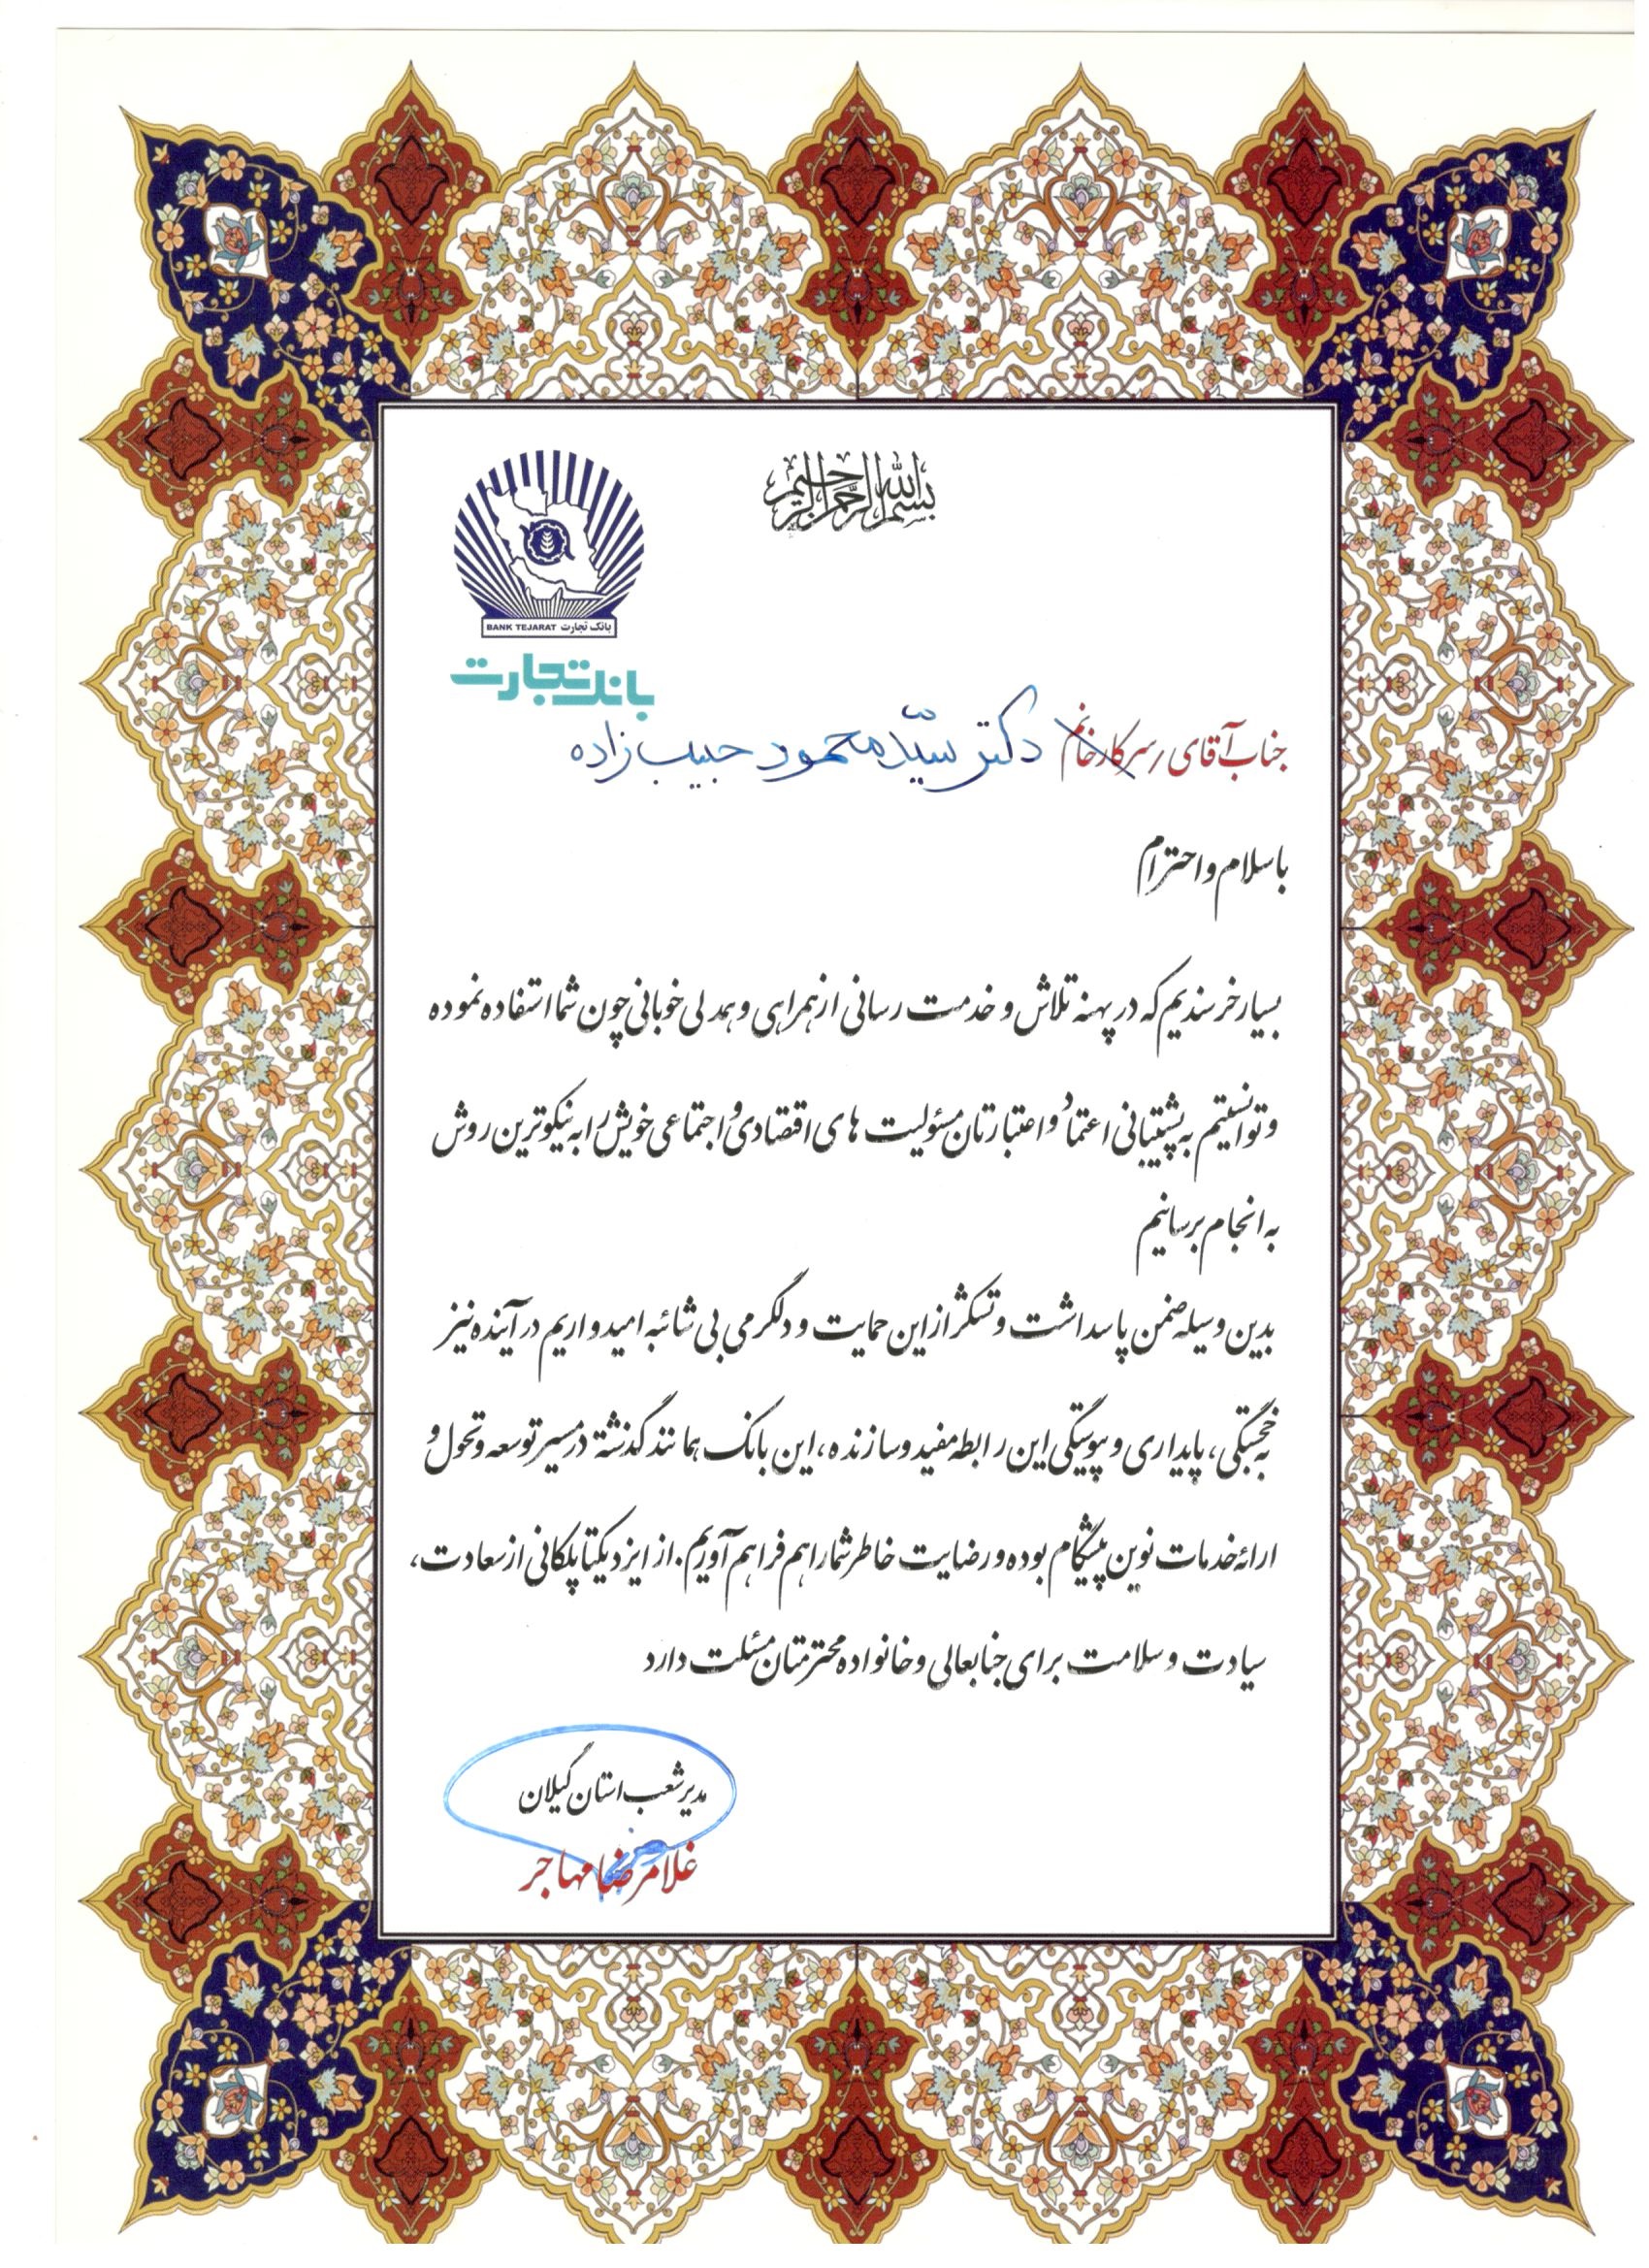 بسم الله الرحمن الرحیم
BANK TEJARAT بانک تجارت
بانک تجارت
جناب آقای / سرکار خانم دکتر سیّد محمود حبیب زاده
با سلام و احترام
بسیار خرسندیم که در پهنه تلاش و خدمت رسانی از همراهی و همدلی خوبانی چون شما استفاده نموده
و توانستیم به پشتیبانی اعتماد و اعتبارتان مسئولیت های اقتصادی و اجتماعی خویش را به نیکوترین روش
به انجام برسانیم
بدین وسیله ضمن پاسداشت و تشکر از این حمایت و دلگرمی بی شائبه امیدواریم در آینده نیز
به خجستگی، پایداری و پیوستگی این رابطه مفید و سازنده، این بانک همانند گذشته در مسیر توسعه و تحول و
ارائه خدمات نوین پیشگام بوده و رضایت خاطر شما را هم فراهم آوریم. از ایزد یکتا پلکانی از سعادت،
سیادت و سلامت برای جنابعالی و خانواده محترمتان مسئلت دارد
مدیر شعب استان گیلان
غلامرضا مهاجر